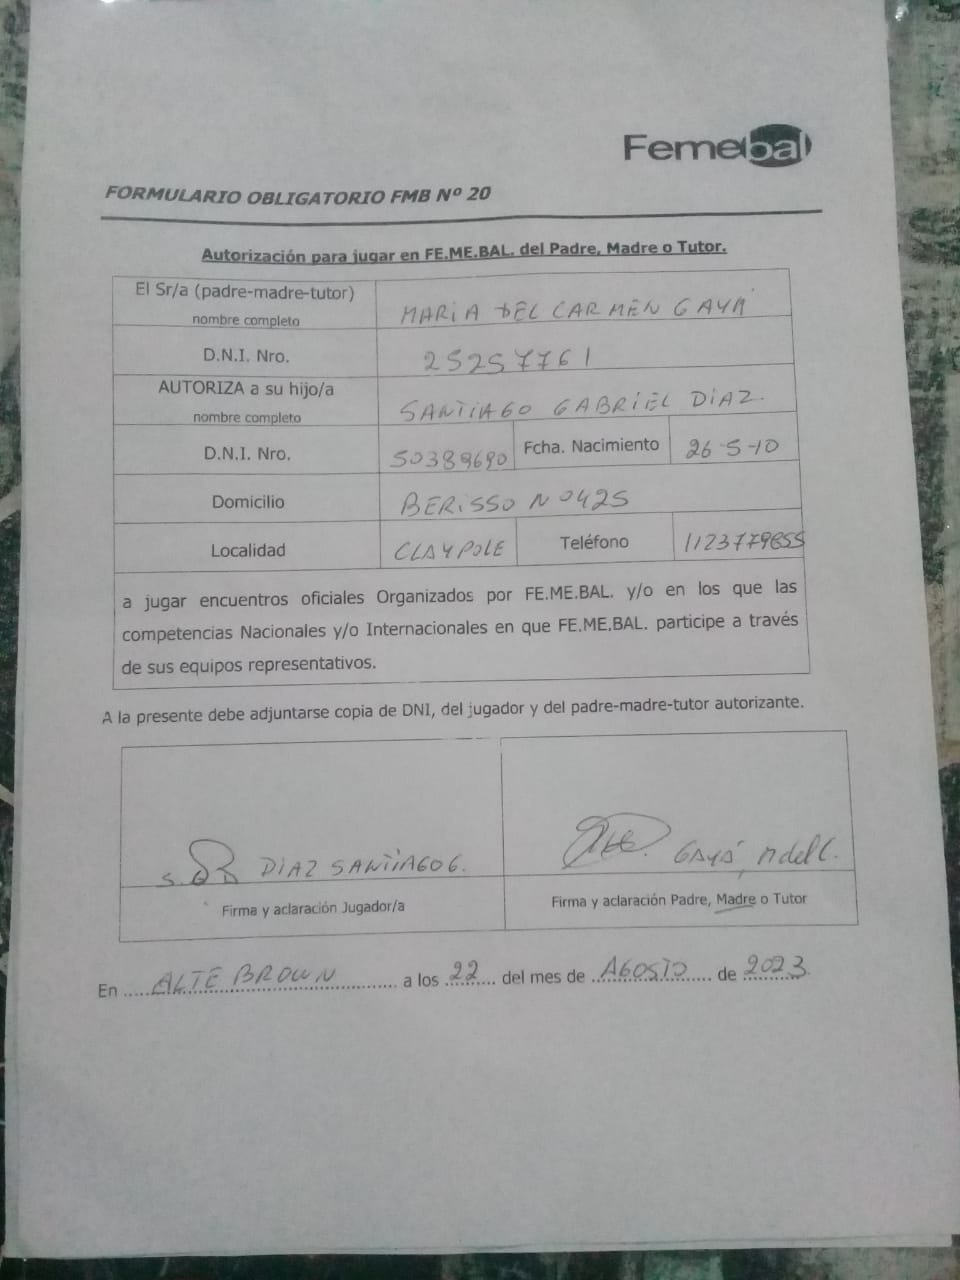 Femebal
FORMULARIO OBLIGATORIO FMB Nº 20
Autorización para jugar en FE.ME.BAL. del Padre, Madre o Tutor.
El Sr/a (padre-madre-tutor) nombre completo MARIA DEL CARMEN GAYÁ
D.N.I. Nro. 25257761
AUTORIZA a su hijo/a nombre completo SANTIAGO GABRIEL DIAZ.
D.N.I. Nro. 50389690 Fcha. Nacimiento 26-5-10
Domicilio BERISSO Nº 0425
Localidad CLAYPOLE Teléfono 1123779855
a jugar encuentros oficiales Organizados por FE.ME.BAL. y/o en los que las
competencias Nacionales y/o Internacionales en que FE.ME.BAL. participe a través
de sus equipos representativos.
A la presente debe adjuntarse copia de DNI, del jugador y del padre-madre-tutor autorizante.
DIAZ SANTIAGO G. GAYÁ M del C.
Firma y aclaración Jugador/a Firma y aclaración Padre, Madre o Tutor
En ALTE BROWN a los 22 del mes de AGOSTO de 2023